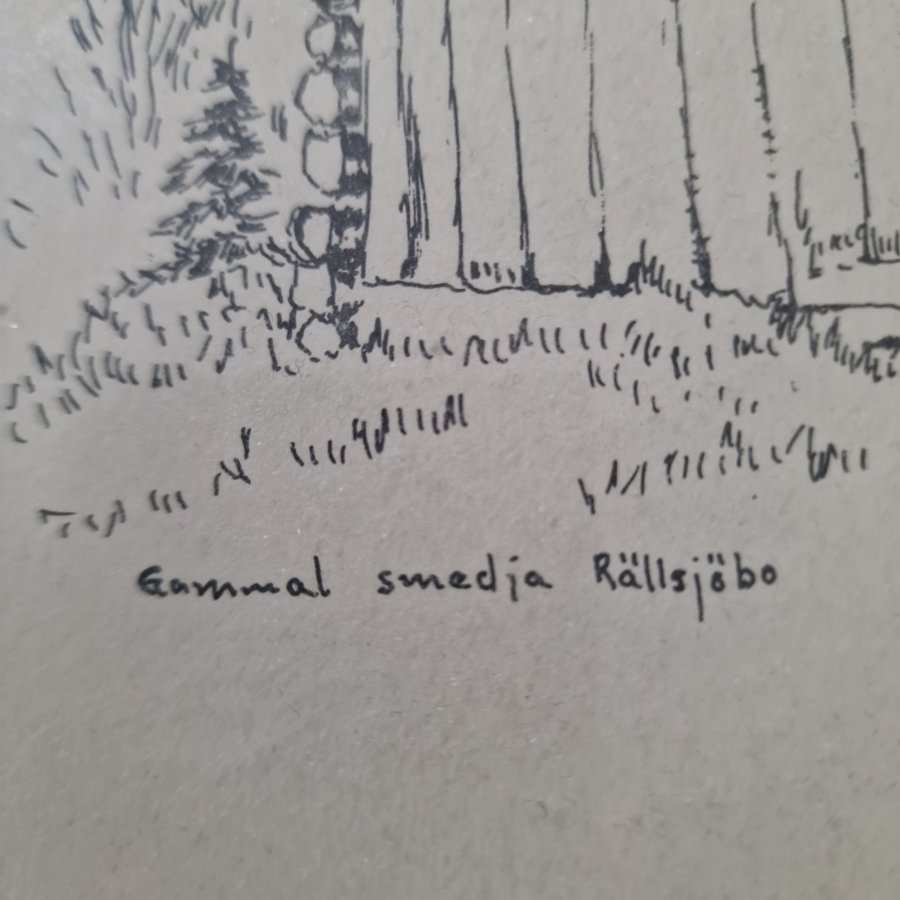 Gammal smedja Rällsjöbo